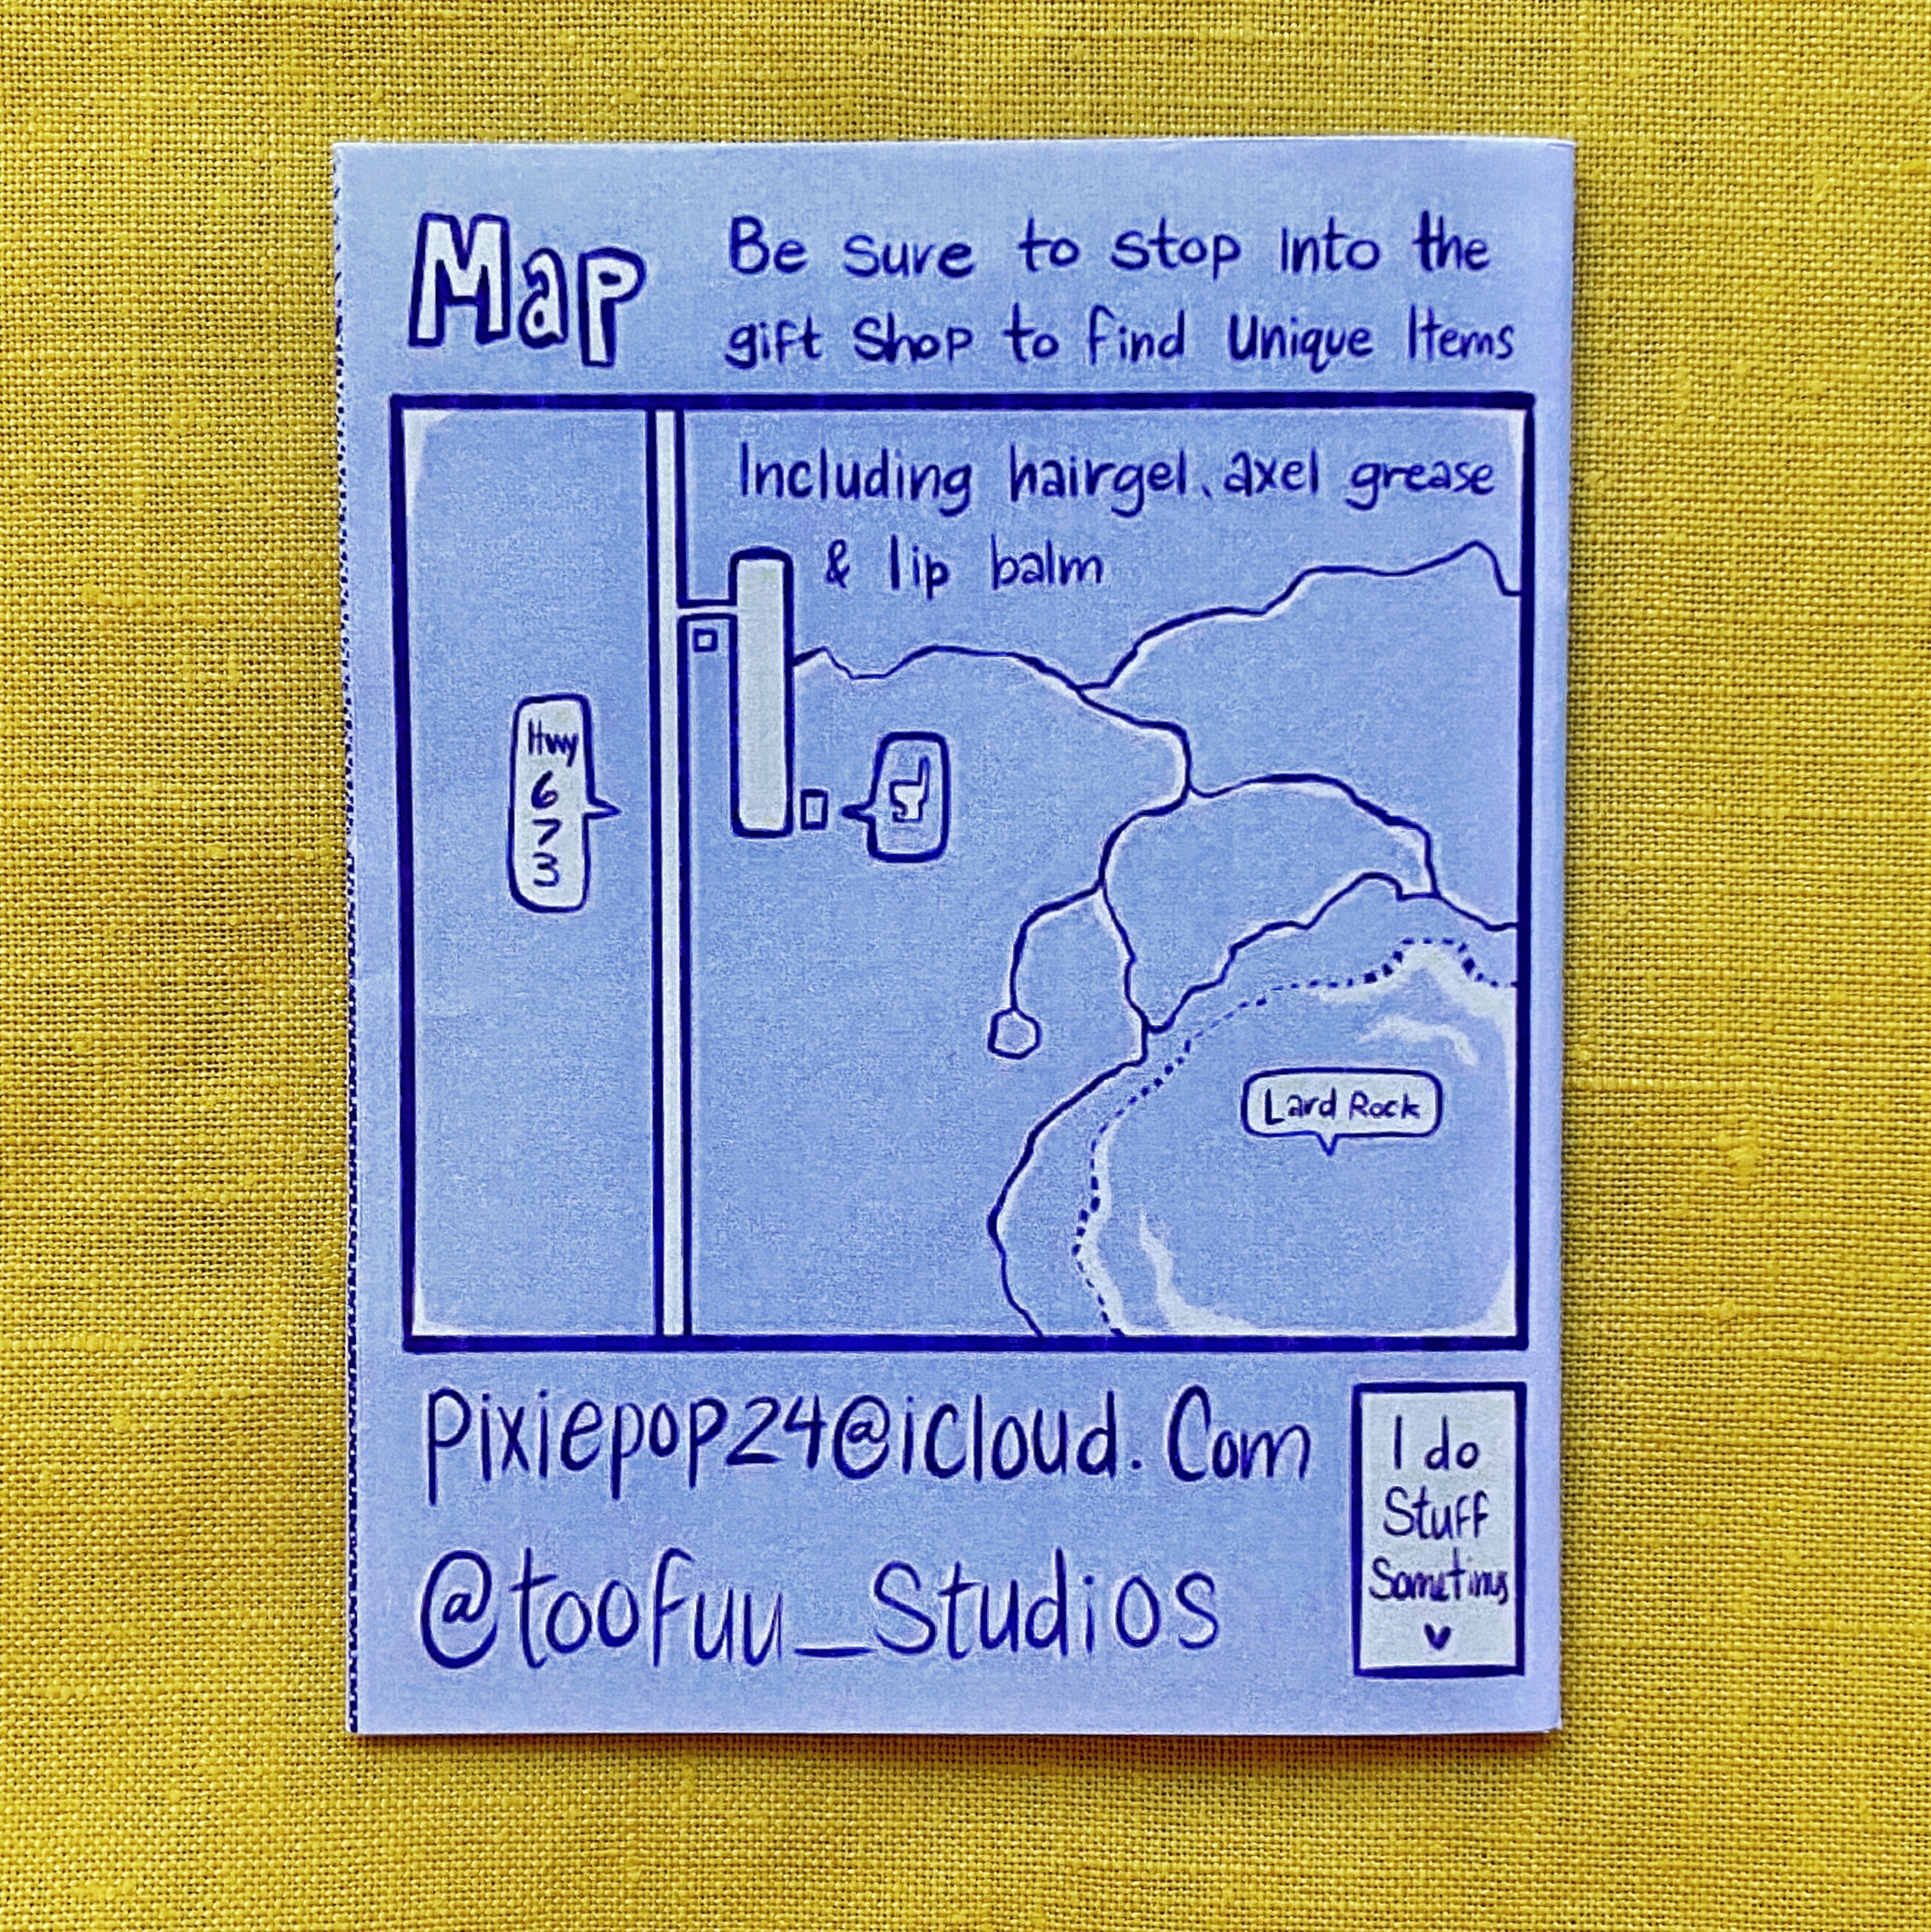 Map
Be sure to stop into the
gift Shop to find Unique Items
Including hairgel, axel grease
& lip balm
Hwy
6
7
3
Lard Rock
Pixiepop24@icloud.Com
@toofuu_Studios
I do
Stuff
Sometims